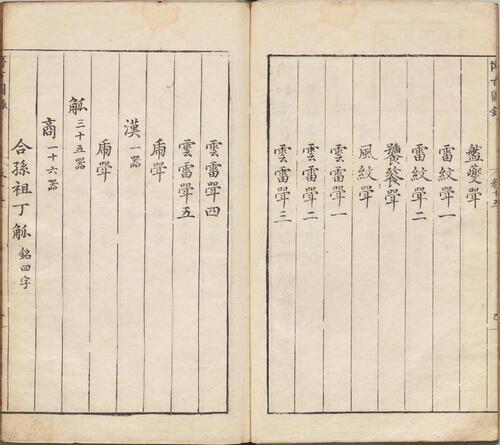 盤夔斝
雷紋斝一
雷紋斝二
饕餮斝
風紋斝
雲雷斝一
雲雷斝二
雲雷斝三
雲雷斝四
雲雷斝五
乕斝
漢 一器
乕斝
觚 三十五器
商 一十六器
合孫祖丁觚 銘四字